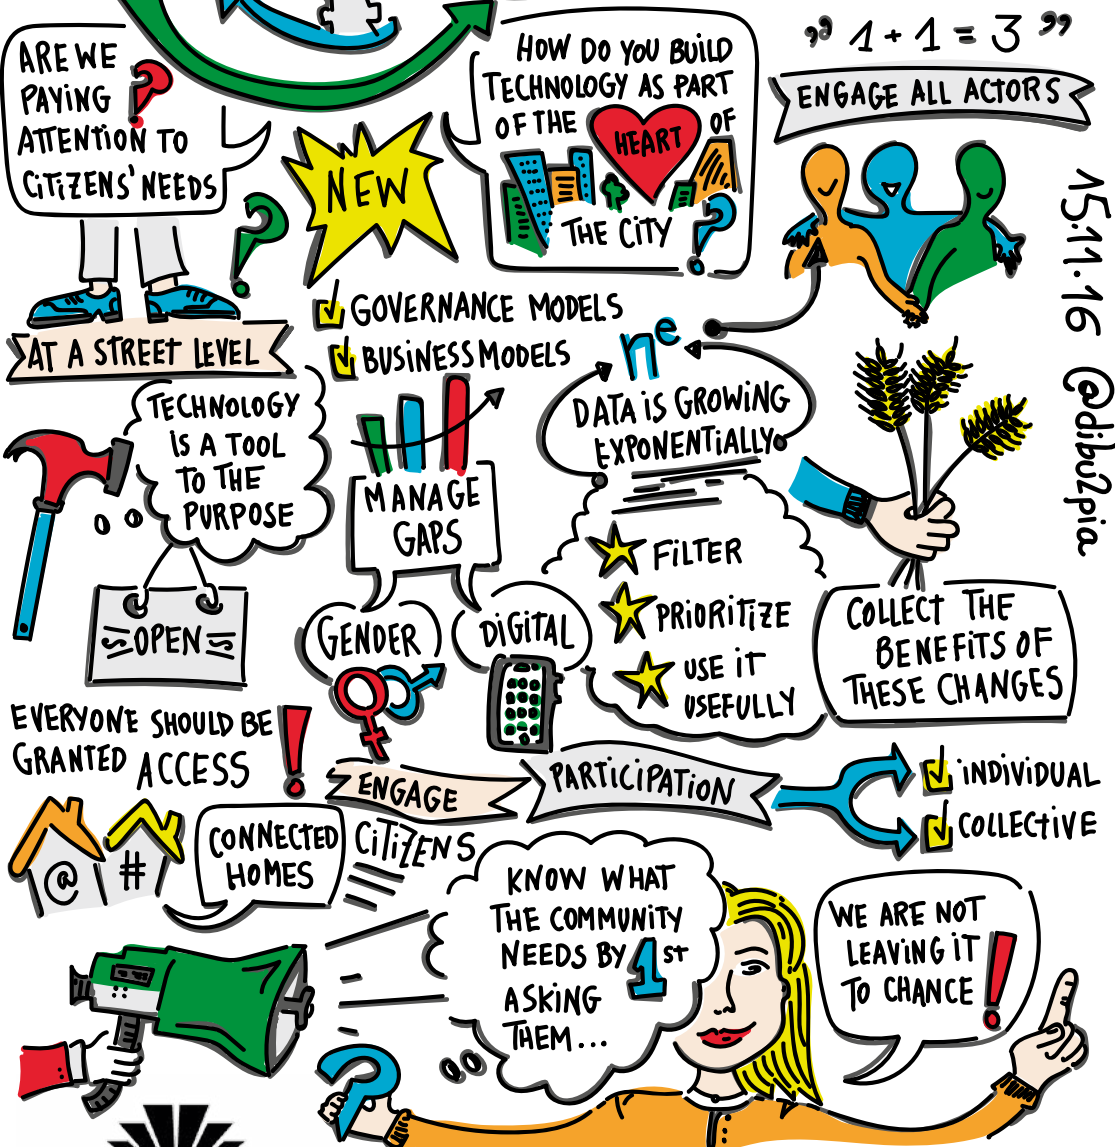 ARE WE
PAYING ?
ATTENTION TO
CITIZENS' NEEDS
?
AT A STREET LEVEL
NEW
HOW DO YOU BUILD
TECHNOLOGY AS PART
OF THE HEART OF
THE CITY ?
" 1 + 1 = 3 "
ENGAGE ALL ACTORS
15.11.16 @dibu2pia
GOVERNANCE MODELS
BUSINESS MODELS
TECHNOLOGY
IS A TOOL
TO THE
PURPOSE
OPEN
MANAGE
GAPS
GENDER
DIGITAL
ne
DATA IS GROWING
EXPONENTIALLY
FILTER
PRIORITIZE
USE IT
USEFULLY
COLLECT THE
BENEFITS OF
THESE CHANGES
EVERYONE SHOULD BE
GRANTED ACCESS !
@ #
CONNECTED
HOMES
ENGAGE
CITIZENS
PARTICIPATION
INDIVIDUAL
COLLECTIVE
KNOW WHAT
THE COMMUNITY
NEEDS BY 1st
ASKING
THEM...
?
WE ARE NOT
LEAVING IT
TO CHANCE !